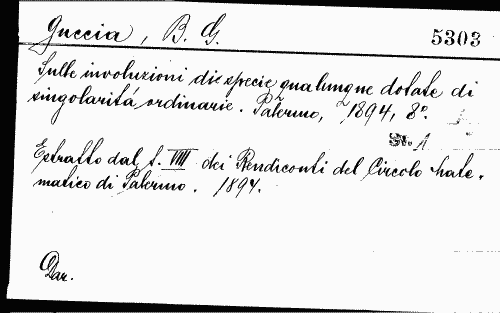 Guccia, B. G. 5303
Sulle involuzioni di specie qualunque dotate di
singolarità ordinarie. Palermo, 1894, 8º.
St. A
Estratto dal t. VIII dei Rendiconti del Circolo mate-
matico di Palermo. 1894.
Dar.